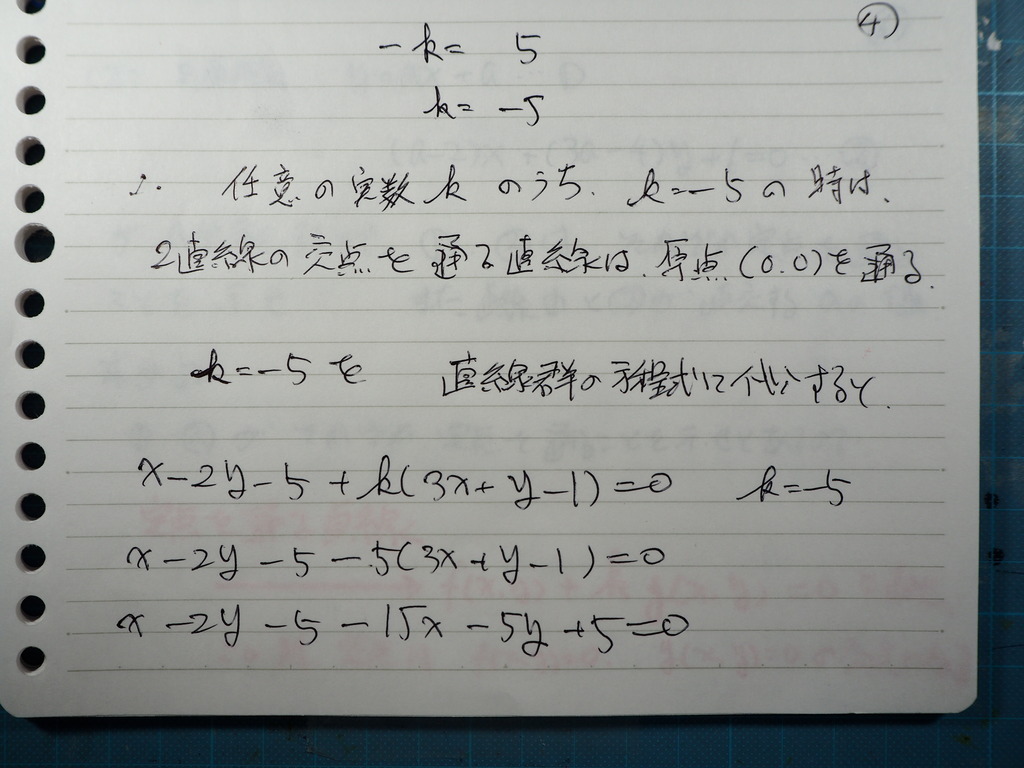 ④
-k= 5
k= -5
∴ 任意の実数 k のうち、 k=-5 の 時は、
2直線の交点を通る直線は、原点(0.0)を通る.
k=-5を 直線群の方程式に代入すると、
x-2y-5+k(3x+y-1)=0 k=-5
x-2y-5-5(3x+y-1)=0
x-2y-5-15x-5y+5=0